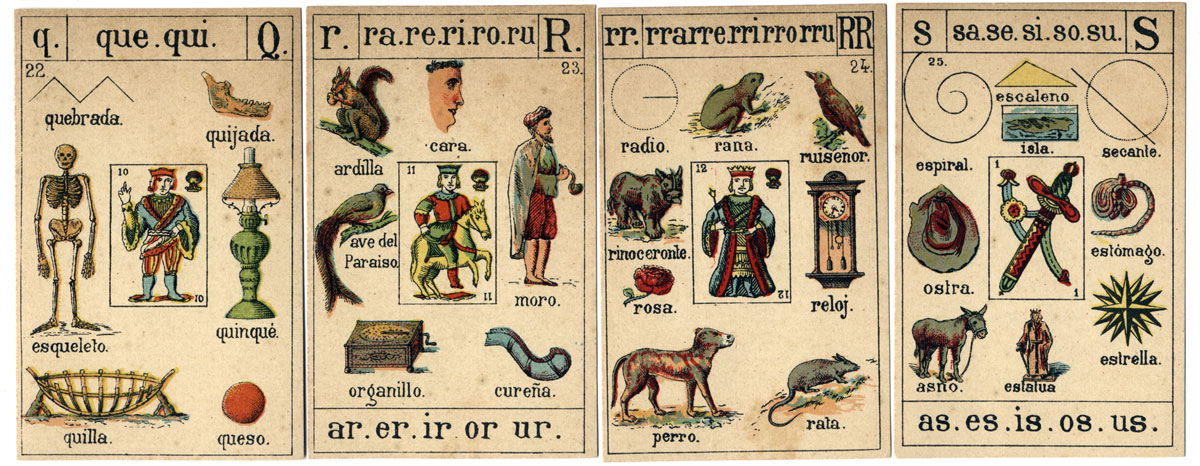 q. que.qui. Q.
22
quebrada.
quijada.
10
10
esqueleto.
quinqué.
quilla.
queso.
r. ra.re.ri.ro.ru R.
23.
ardilla
cara.
11
ave del
Paraiso.
11
moro.
organillo.
cureña.
ar. er. ir or ur.
rr. rrarre.rrirrorru RR
24.
radio.
rana.
ruiseñor.
12
rinoceronte.
rosa.
12
reloj.
perro.
rata.
S sa.se.si.so.su. S
25.
escaleno
isla.
secante.
espiral.
1
1
1
ostra.
estómago.
asno.
estatua
estrella.
as.es.is.os.us.